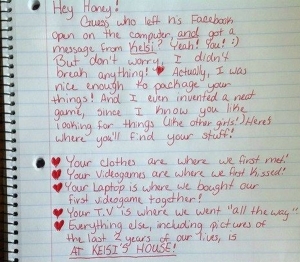 Hey Honey!
Guess who left his Facebook
open on the computer, and got a
message from Keisi? Yeah! You! :)
But don't worry, I didn't
break anything! ♥ Actually, I was
nice enough to package your
things! And I even invented a neat
game, since I know you like
looking for things (like other girls!) Here's
where you'll find your stuff!
♥ Your clothes are where we first met!
♥ Your videogames are where we first kissed!
♥ Your Laptop is where we bought our
first videogame together!
♥ Your T.V is where we went "all the way"
♥ Everything else, including pictures of
the last 2 years of our lives, is
AT KEISI'S HOUSE!